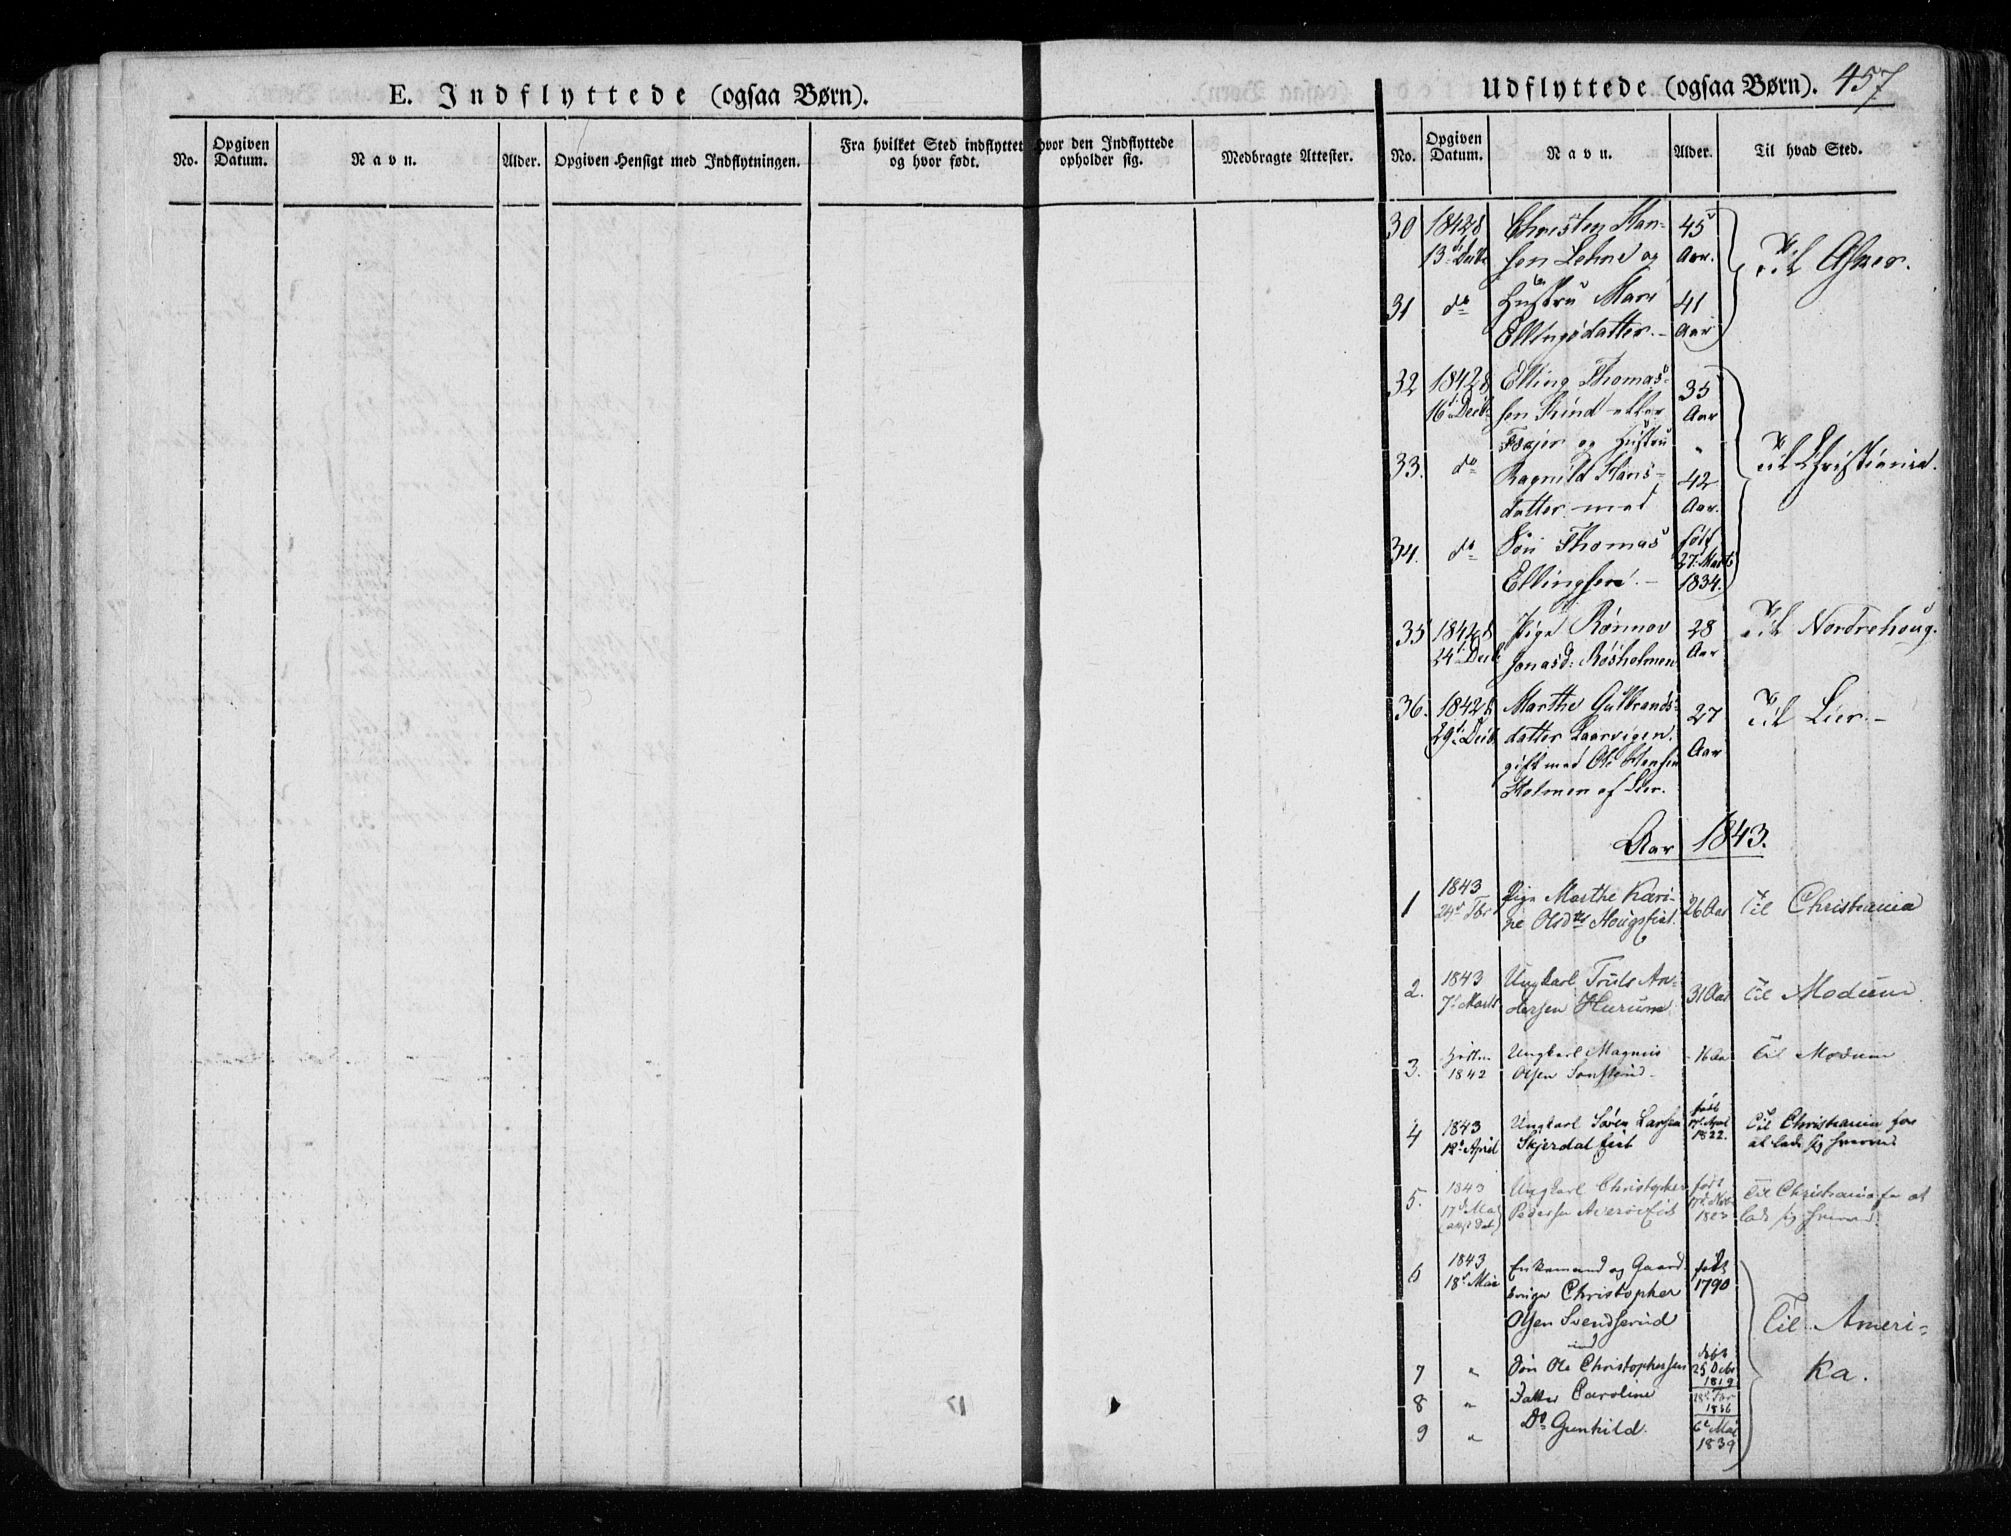 E. Indflyttede (ogsaa Børn).
No. Opgiven Datum. Navn. Alder. Opgiven Hensigt med Indflytningen. Fra hvilket Sted indflyttet og hvor født. Hvor den Indflyttede opholder sig. Medbragte Attester.
Udflyttede (ogsaa Børn). 457
No. Opgiven Datum. Navn. Alder. Til hvad Sted.
30 1842 Christen Han- 45
13 Decbr sen Lehne og Aar. Til Asker.
31 do Hustru Mari 41
Ellingsdatter. Aar
32 1842 Elling Thomas- 35
16 Decbr sen Rud eller Aar
og Hustru
33. do Ragnild Hans- 42 Til Christiania.
datter med Aar.
34. do Søn Thomas født 27 Marts
Ellingsen. 1834.
35 1842 Pige Rønnov 28 Til Nordrehoug.
24 Decbr Jonasd: Røsholmen Aar
36. 1842 Marthe Gulbrands- 27 Til Lier.
29 Decbr datter Laarvigen. Aar
gift med Ole Hansen
Holmen af Lier.
Aar 1843.
1 1843 Pige Marthe Kari- 26 Aar Til Christiania
24 Fbr ne Olsdtr Hougsfiat.
2. 1843 Ungkarl Truls An- 31 Aar Til Modum
7 Marts dersen Hurum
3. Høsten Ungkarl Magnus 16 Aar Til Modum
1842 Olsen
4 1843 Ungkarl Søren Larsen født 17 April 1822. Til Christiania for
12 April Skjerdalseie at lade sig hverve
5. 1843 Ungkarl Christopher født Til Christiania for at
17 Mai Pedersen 1823 lade sig hverve.
6 1843 Enkemand og Gaard- født
18 Mai bruger Christopher 1790
Olsen Svendserud Til Ameri-
7 " Søn Ole Christophersen født 25 Decbr 1819 ka.
8 " Datter Caroline 1836
9 " Do Gunhild. 6 Mai 1839